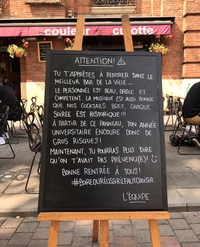 couleur culotte
ATTENTION!
TU T'APPRÊTES À RENTRER DANS LE
MEILLEUR BAR DE LA VILLE...
LE PERSONNEL EST BEAU, DRÔLE ET
COMPÉTENT, LA MUSIQUE EST AUSSI BONNE
QUE NOS COCKTAILS. BREF, CHAQUE
SOIRÉE EST HISTORIQUE!!!
À PARTIR DE CE PANNEAU, TON ANNÉE
UNIVERSITAIRE ENCOURE DONC DE
GROS RISQUES!
MAINTENANT, TU POURRAS PLUS DIRE
QU'ON T'AVAIT PAS PRÉVENU(E)!
BONNE RENTRÉE À TOUS!
L'ÉQUIPE